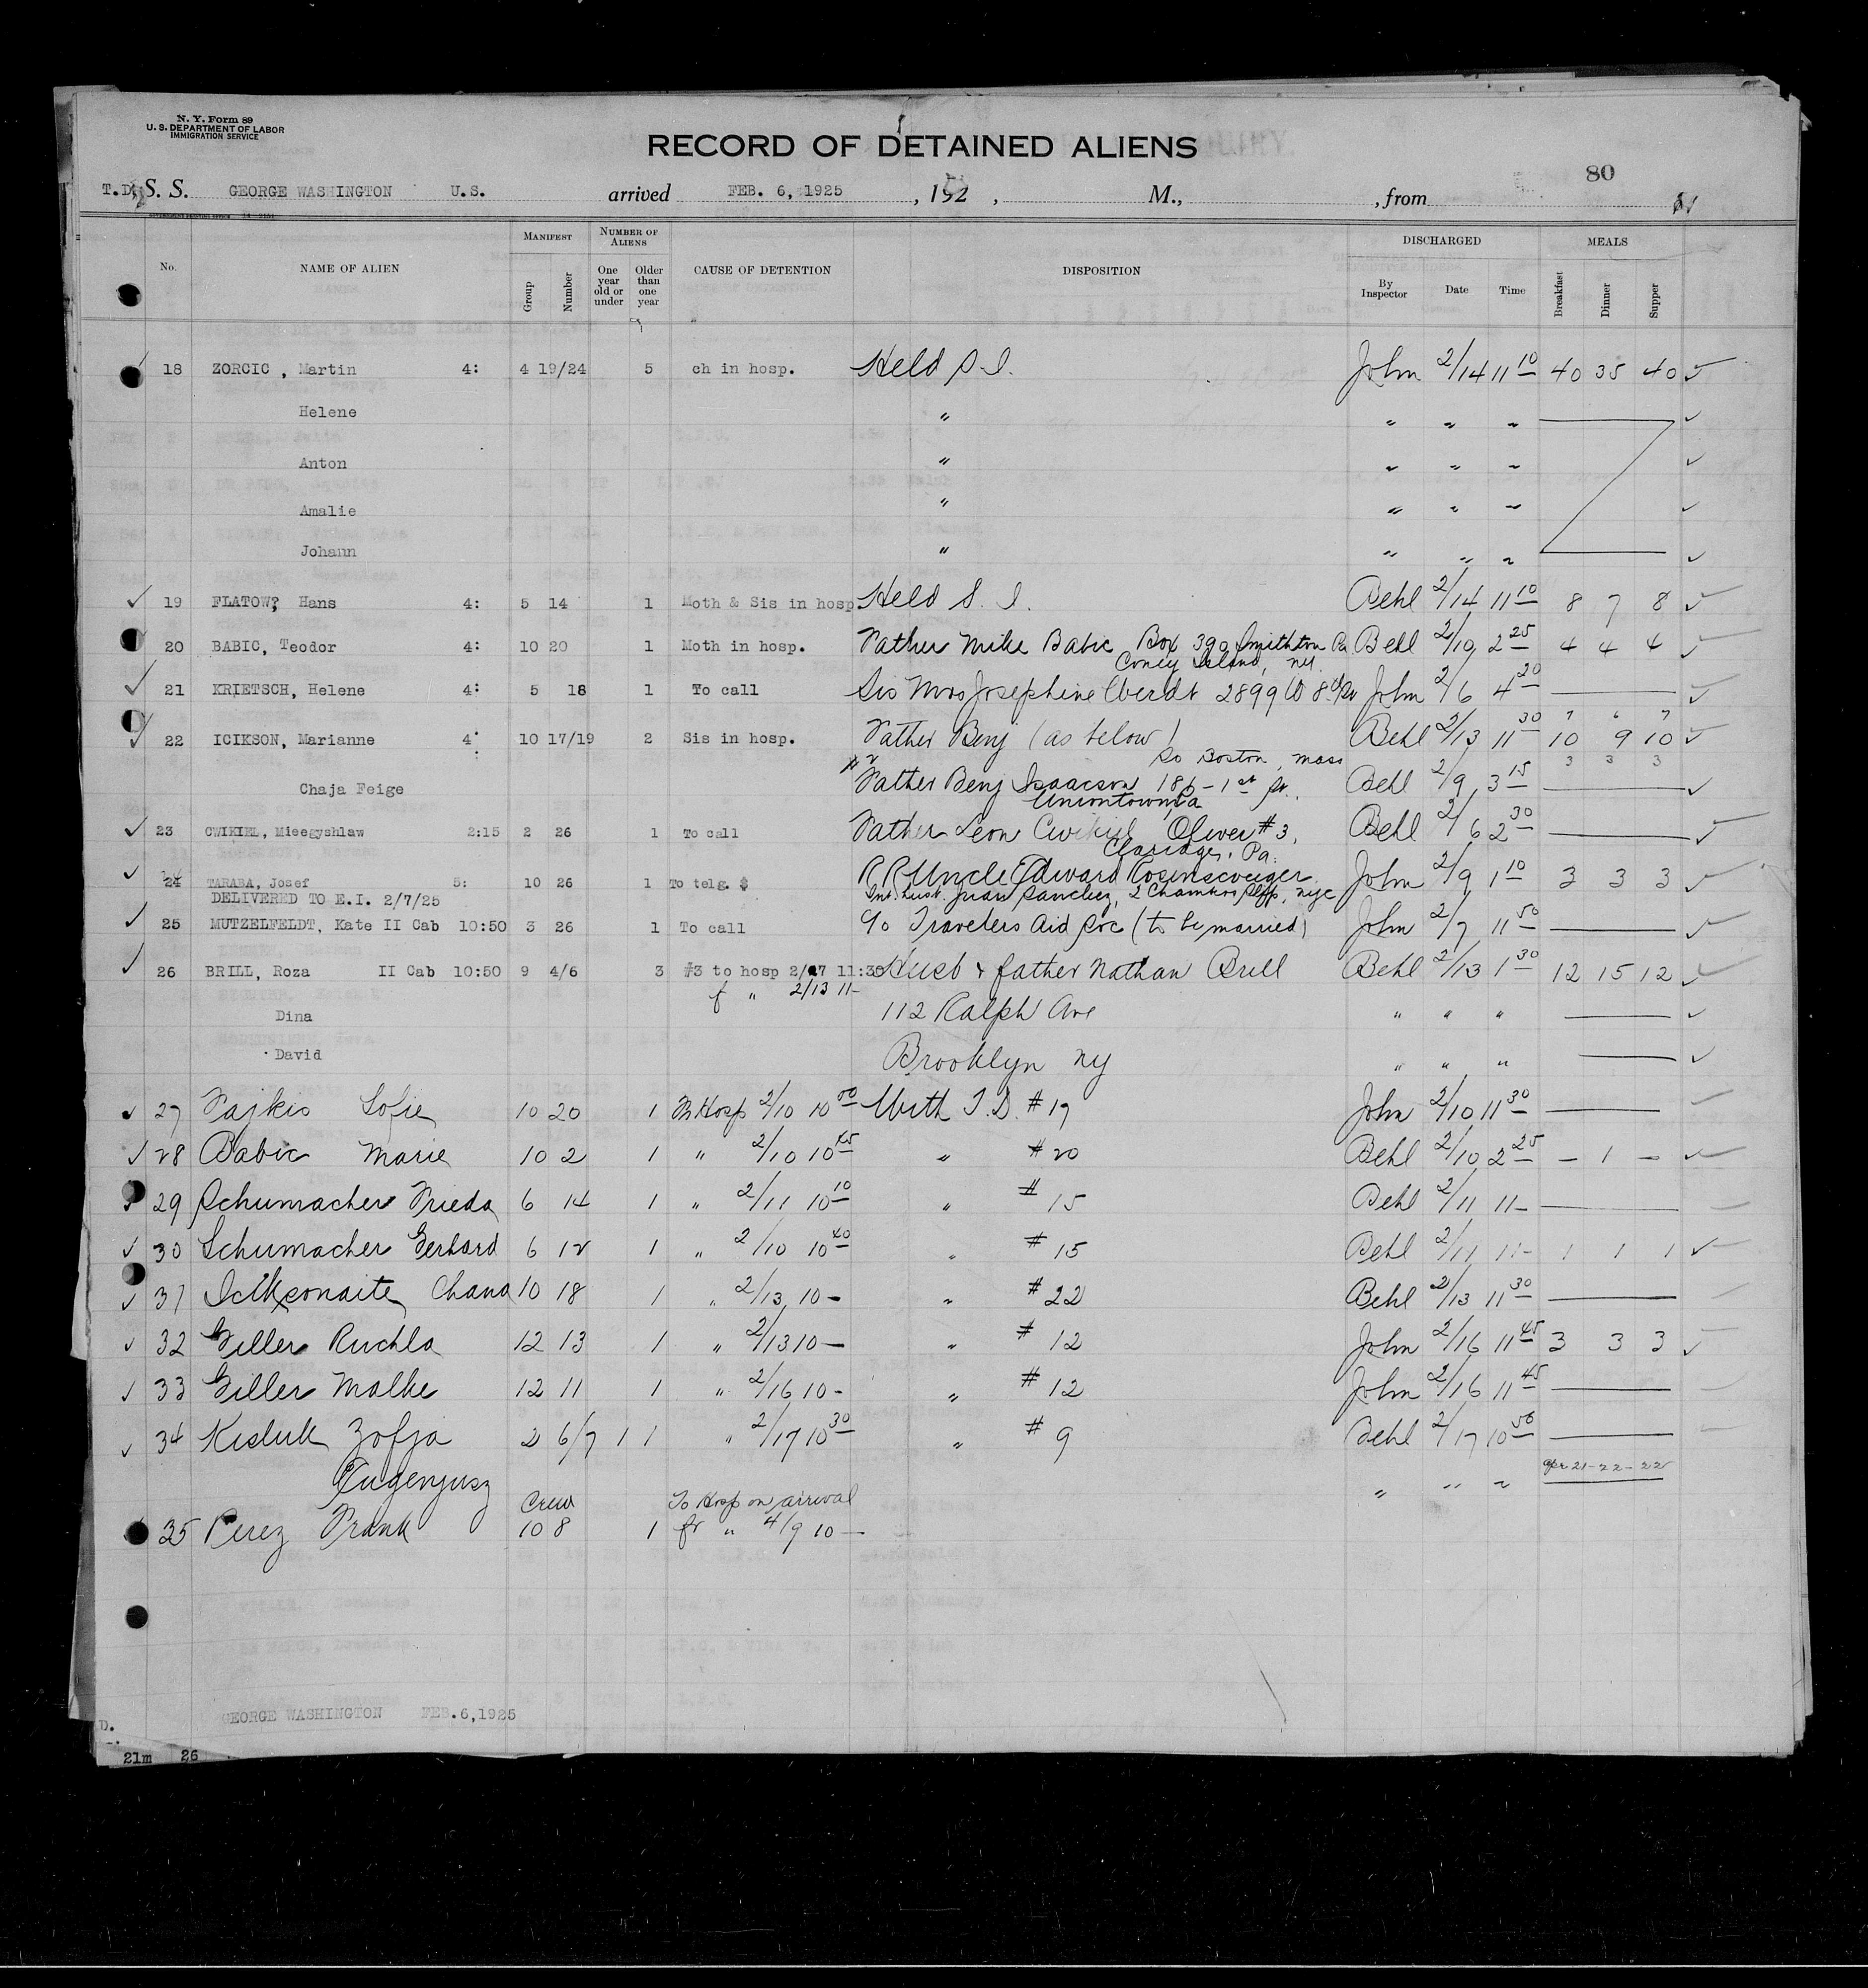 N. Y. Form 89
U. S. DEPARTMENT OF LABOR
IMMIGRATION SERVICE
RECORD OF DETAINED ALIENS
80
T.D. S. S. GEORGE WASHINGTON U.S. arrived FEB. 6, 1925, 192 , M., , from
No. NAME OF ALIEN MANIFEST Group Number NUMBER OF ALIENS One year old or under Older than one year CAUSE OF DETENTION DISPOSITION DISCHARGED By Inspector Date Time MEALS Breakfast Dinner Supper
18 ZORCIC , Martin 4: 4 19/24 5 ch in hosp. Held S. I. John 2/14 11 10 40 35 40
Helene " " " "
Anton " " " "
Amalie " " " "
Johann " " " "
19 FLATOW, Hans 4: 5 14 1 Moth & Sis in hosp. Held S. I. Behl 2/14 11 10 8 7 8
20 BABIC, Teodor 4: 10 20 1 Moth in hosp. Father Mike Babic Box 390 Smithton Pa Behl 2/10 2 25 4 4 4
Coney Island, NY.
21 KRIETSCH, Helene 4: 5 18 1 To call Sis Mrs Josephine Eberdt 2899 W 8 St John 2/6 4 20
7 6 7
22 ICIKSON, Marianne 4: 10 17/19 2 Sis in hosp. Father Benj (as below) Behl 2/13 11 30 10 9 10
So Boston, Mass 3 3 3
Chaja Feige #2 Father Benj Isaacson 186 - 1st St. Behl 2/9 3 15
Uniontown Pa
23 CWIKIEL, Mieegyshlaw 2:15 2 26 1 To call Father Leon Cwikiel Oliver #3, Behl 2/6 2 30
Claridge, Pa.
24 TARABA, Josef 5: 10 26 1 To telg. $ RR Uncle Edward John 2/9 1 10 3 3 3
DELIVERED TO E.I. 2/7/25 Juan Sanchez, 2 NYC
25 MUTZELFELDT, Kate II Cab 10:50 3 26 1 To call c/o Travelers Aid Soc (to be married) John 2/7 11 50
26 BRILL, Roza II Cab 10:50 9 4/6 3 #3 to hosp 2/7 11:30 Husb & father Nathan Brill Behl 2/13 1 30 12 15 12
f " 2/13 11-
Dina 112 Ralph Ave " " "
David Brooklyn NY " " "
27 Fajkis Sofie 10 20 1 Hosp 2/10 10 50 With T.D. #19 John 2/10 11 30
28 Babic Marie 10 2 1 " 2/10 10 45 " #20 Behl 2/10 2 25 - 1 -
29 Schumacher Frieda 6 14 1 " 2/11 10 10 " #15 Behl 2/11 11-
30 Schumacher Gerhard 6 12 1 " 2/10 10 40 " #15 Behl 2/11 11- 1 1 1
31 Iciksonaite Chana 10 18 1 " 2/13 10- " #22 Behl 2/13 11 30
32 Giller Ruchla 12 13 1 " 2/13 10- " #12 John 2/16 11 45 3 3 3
33 Giller Malke 12 11 1 " 2/16 10- " #12 John 2/16 11 45
34 Kisluk Zofja 2 6/7 1 1 " 2/17 10 30 " #9 Behl 2/17 10 50
Eugenjusz " " " 21-22-22
Crew To Hosp on arrival
35 Perez Frank 10 8 1 fr " 4/9 10-
GEORGE WASHINGTON FEB.6,1925
D.
21m 26